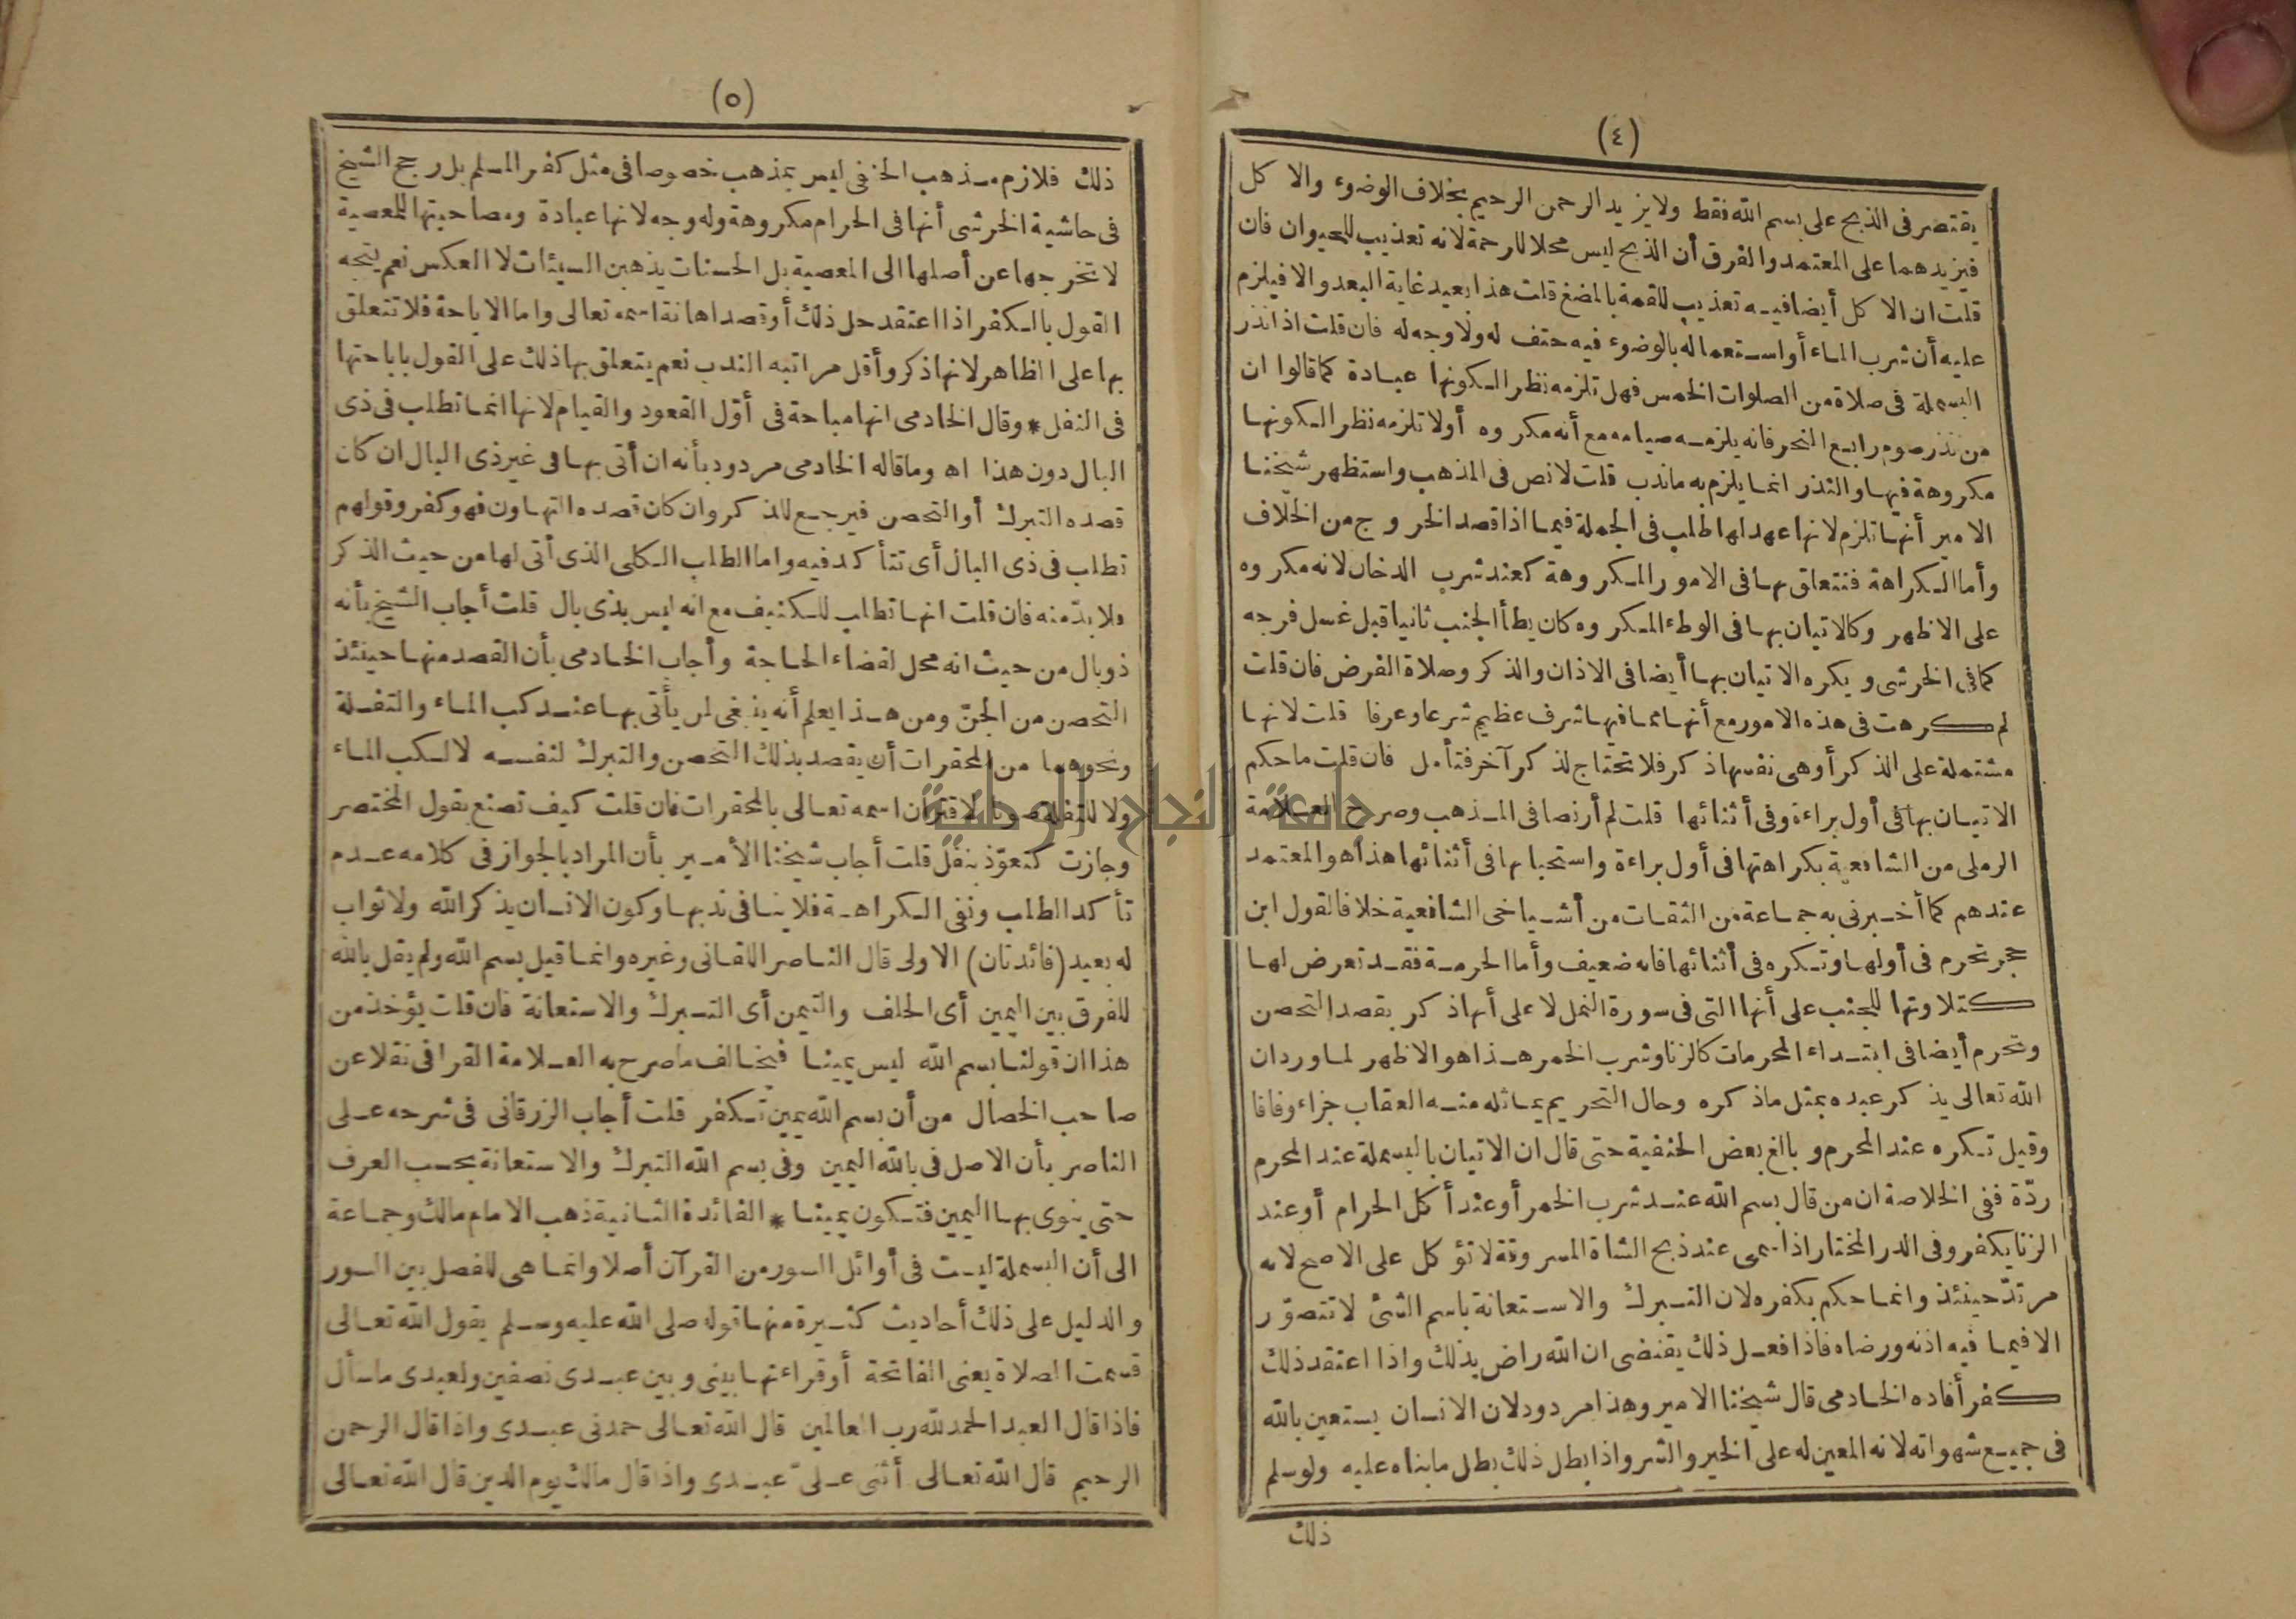 (٤)
يقتصر فى الذبح على بسم الله فقط ولا يزيد الرحمن الرحيم بخلاف الوضوء والاكل
فيزيدهما على المعتمد والفرق أن الذبح ليس محلا للرحمة لانه تعذيب للحيوان فان
قلت ان الاكل أيضا فيه تعذيب للقمة بالمضغ قلت هذا بعيد غاية البعد والا فيلزم
عليه أن شرب الماء أو استعماله بالوضوء فيه حتف له ولا وجه له فان قلت اذا نذر
البسملة فى صلاة من الصلوات الخمس فهل تلزمه نظرا لكونها عبادة كما قالوا ان
من نذر صوم رابع النحر فانه يلزمه صيامه مع أنه مكروه أولا تلزمه نظرا لكونها
مكروهة فيها والنذر انما يلزم به ماندب قلت لا نص فى المذهب واستظهر شيخنا
الامير أنها تلزم لانها عهد لها طلب فى الجملة فيما اذا قصد الخروج من الخلاف
وأما الكراهة فتتعلق بها فى الامور المكروهة كعند شرب الدخان لانه مكروه
على الاظهر وكالاتيان بها فى الوطء المكروه كان يطأ الجنب ثانيا قبل غسل فرجه
كما فى الخرشى ويكره الاتيان بها أيضا فى الاذان والذكر وصلاة الفرض فان قلت
لم كرهت فى هذه الامور مع أنها مما فيها شرف عظيم شرعا وعرفا قلت لانها
مشتملة على الذكر أو هى نفسها ذكر فلا تحتاج لذكر آخر فتأمل فان قلت ما حكم
الاتيان بها فى أول براءة وفى أثنائها قلت لم أر نصا فى المذهب وصرح العلامة
الرملى من الشافعية بكراهتها فى أول براءة واستحبابها فى أثنائها هذا هو المعتمد
عندهم كما أخبرنى به جماعة من الثقات من أشياخى الشافعية خلافا لقول ابن
حجر تحرم فى أولها وتكره فى أثنائها فانه ضعيف وأما الحرمة فقد تعرض لها
كتلاوتها للجنب على أنها التى فى سورة النمل لا على أنها ذكر بقصد التحصن
وتحرم أيضا فى ابتداء المحرمات كالزنا وشرب الخمر هذا هو الاظهر لما ورد ان
الله تعالى يذكر عبده بمثل ما ذكره وحال التحريم يماثله منه العقاب جزاء وفاقا
وقيل تكره عند المحرم وبالغ بعض الحنفية حتى قال ان الاتيان بالبسملة عند المحرم
ردّة ففى الخلاصة ان من قال بسم الله عند شرب الخمر أو عند أكل الحرام أو عند
الزنا يكفر وفى الدر المختار اذا سمى عند ذبح الشاة المسروقة لا تؤكل على الاصح لانه
مرتدّ حينئذ وانما حكم بكفره لان التبرك والاستعانة باسم الشئ لا تتصوّر
الا فيما فيه اذنه ورضاه فاذا فعل ذلك يقتضى ان الله راض بذلك واذا اعتقد ذلك
كفر أفاده الخادمى قال شيخنا الامير وهذا مردود لان الانسان يستعين بالله
فى جميع شهواته لانه المعين له على الخير والشر واذا بطل ذلك بطل ما بناه عليه ولو سلم
ذلك
(٥)
ذلك فلازم مذهب الحنفى ليس بمذهب خصوصا فى مثل كفر المسلم بل رجح الشيخ
فى حاشية الخرشى أنها فى الحرام مكروهة وله وجه لانها عبادة ومصاحبتها للمعصية
لا تخرجها عن أصلها الى المعصية بل الحسنات يذهبن السيئات لا العكس نعم يتجه
القول بالكفر اذا اعتقد حل ذلك أو قصد اهانة اسمه تعالى واما الاباحة فلا تتعلق
بها على الظاهر لانها ذكر وأقل مراتبه الندب نعم يتعلق بها ذلك على القول باباحتها
فى النفل * وقال الخادمى انها مباحة فى أوّل القعود والقيام لانها انما تطلب فى ذى
البال دون هذا اه وما قاله الخادمى مردود بأنه ان أتى بها فى غير ذى البال ان كان
قصده التبرك أو التحصن فيرجع للذكر وان كان قصده التهاون فهو كفر وقولهم
تطلب فى ذى البال أى تتأكد فيه واما الطلب الكلى الذى أتى لها من حيث الذكر
فلا بدّ منه فان قلت انها تطلب للكنيف مع انه ليس بذى بال قلت أجاب الشيخ بأنه
ذو بال من حيث انه محل لقضاء الحاجة وأجاب الخادمى بأن القصد منها حينئذ
التحصن من الجنّ ومن هذا يعلم أنه ينبغى لمن يأتى بها عند كب الماء والتفلة
ونحوهما من المحقرات أن يقصد بذلك التحصن والتبرك لنفسه لا لكب الماء
ولا للتفلة صونا لاقتران اسمه تعالى بالمحقرات فان قلت كيف تصنع بقول المختصر
وجازت كتعوّذ بنفل قلت أجاب شيخنا الأمير بأن المراد بالجواز فى كلامه عدم
تأكد الطلب ونفى الكراهة فلا ينافى ندبها وكون الانسان يذكر الله ولا ثواب
له بعيد (فائدتان) الاولى قال الناصر اللقانى وغيره وانما قيل بسم الله ولم يقل بالله
للفرق بين اليمين أى الحلف والتيمن أى التبرك والاستعانة فان قلت يؤخذ من
هذا ان قولنا بسم الله ليس يمينا فيخالف ما صرح به العلامة القرافى نقلا عن
صاحب الخصال من أن بسم الله يمين تكفر قلت أجاب الزرقانى فى شرحه على
الناصر بأن الاصل فى بالله اليمين وفى بسم الله التبرك والاستعانة بحسب العرف
حتى ينوى بها اليمين فتكون يمينا * الفائدة الثانية ذهب الامام مالك وجماعة
الى أن البسملة ليست فى أوائل السور من القرآن أصلا وانما هى للفصل بين السور
والدليل على ذلك أحاديث كثيرة منها قوله صلى الله عليه وسلم يقول الله تعالى
قسمت الصلاة يعنى الفاتحة أو قراءتها بينى وبين عبدى نصفين ولعبدى ما سأل
فاذا قال العبد الحمد لله رب العالمين قال الله تعالى حمدنى عبدى واذا قال الرحمن
الرحيم قال الله تعالى أثنى علىّ عبدى واذا قال مالك يوم الدين قال الله تعالى
جامعة النجاح الوطنية